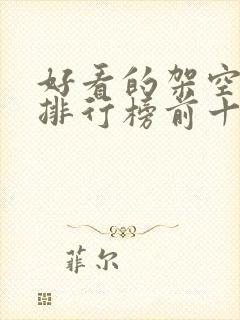 好看的架空
排行榜前十
菲尔